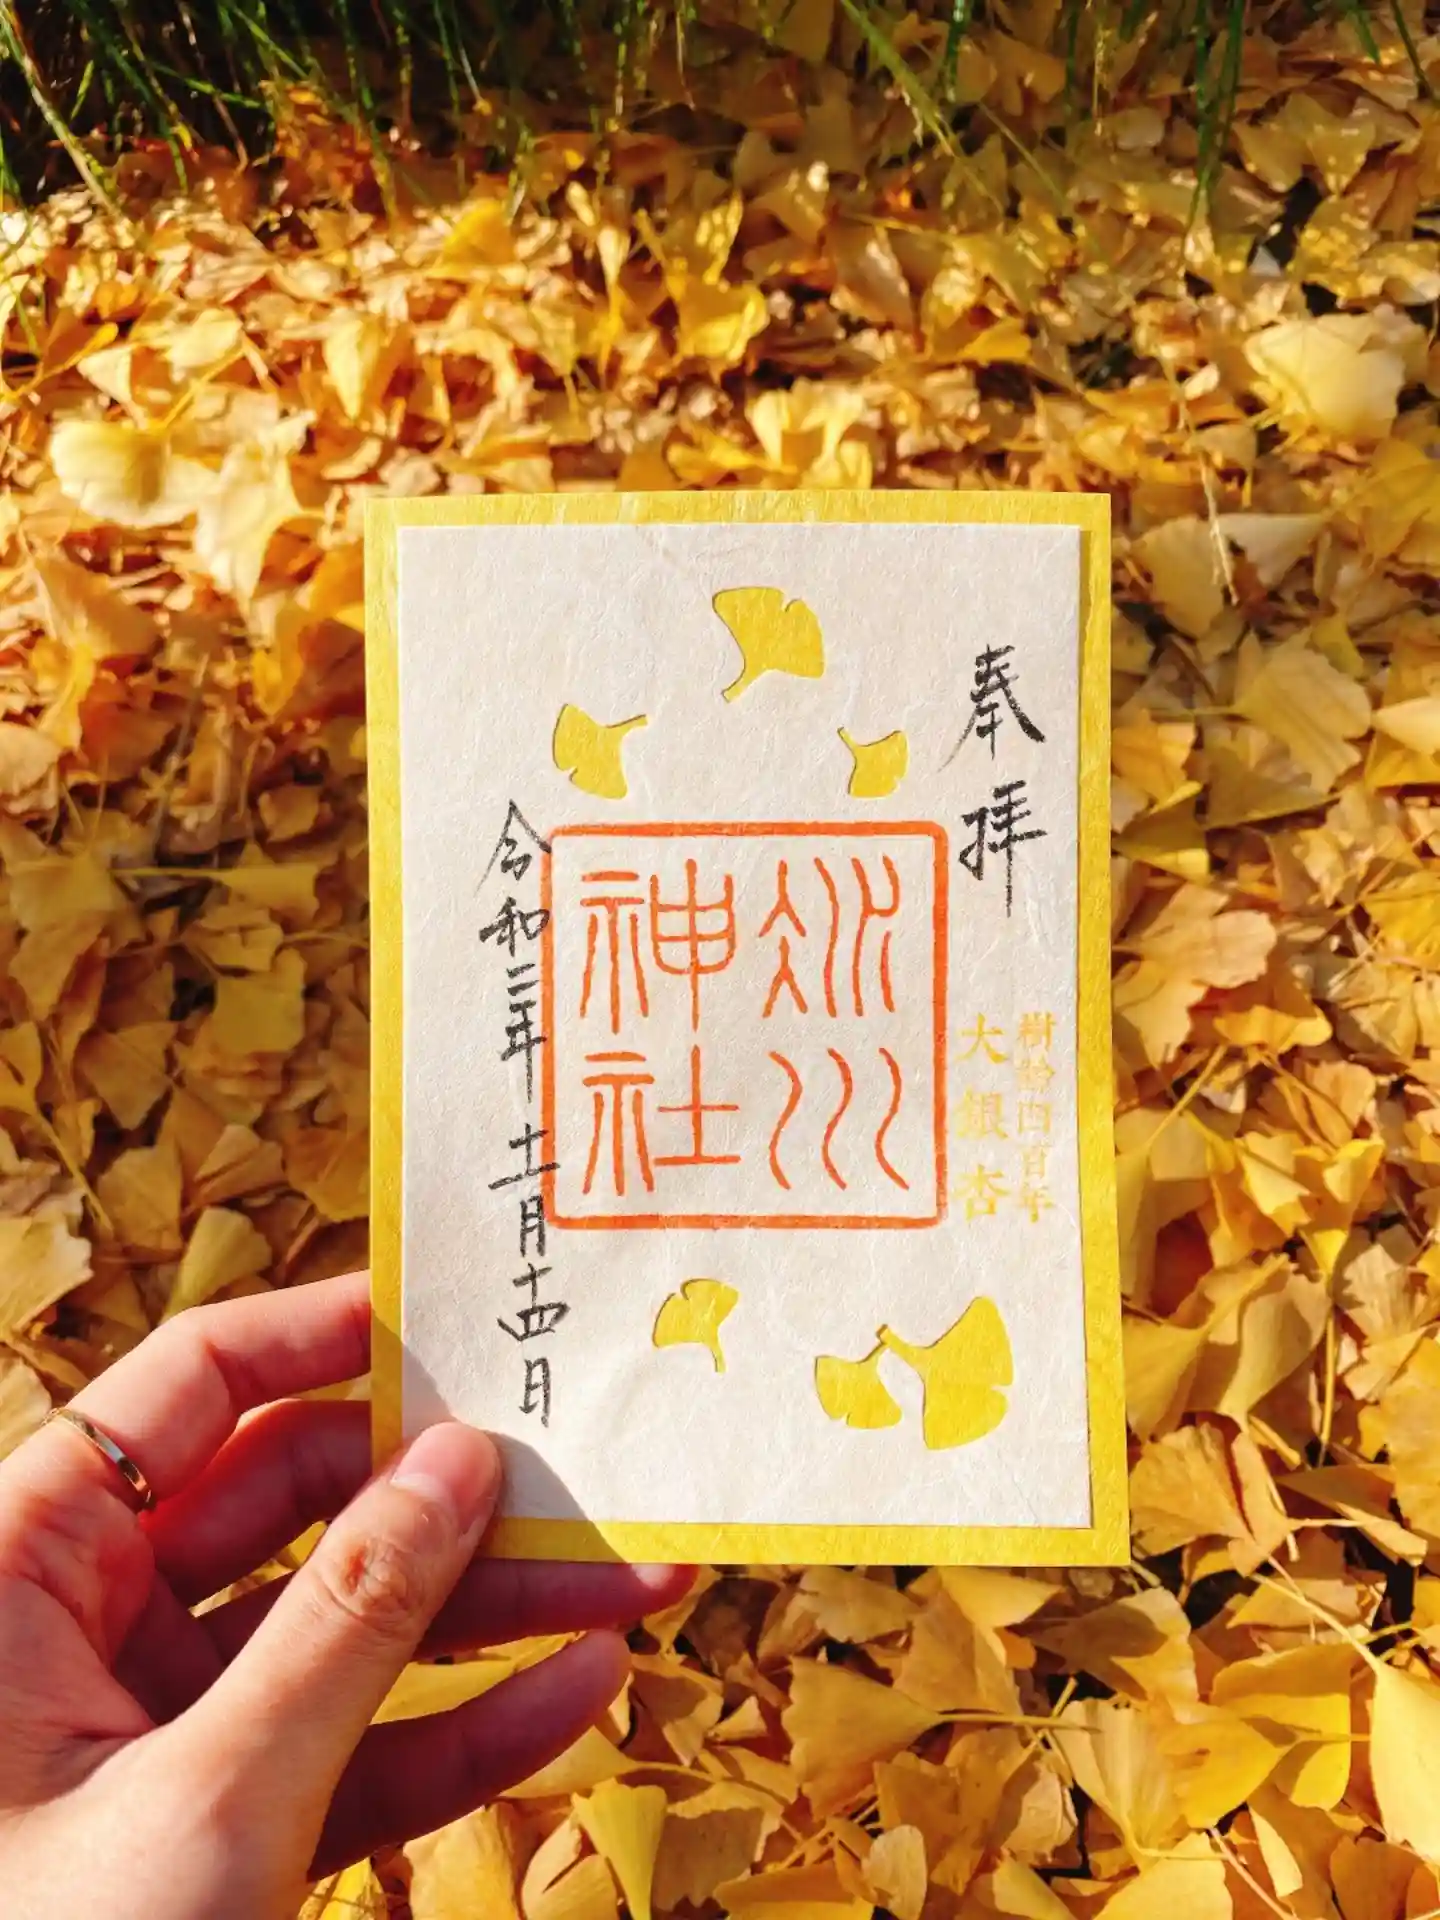 奉拝
樹齢四百年
大銀杏
冰川
神社
令和二年十一月十四日